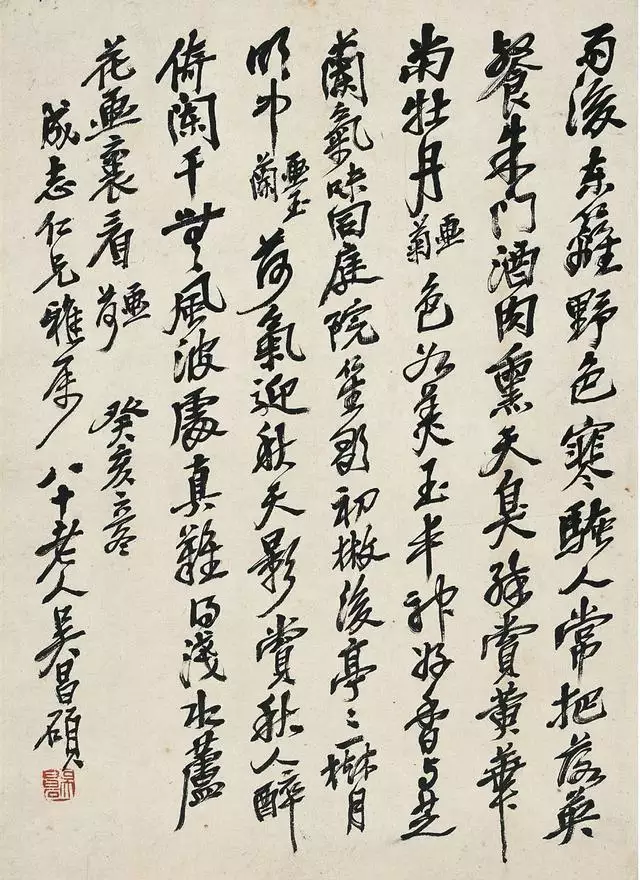 雨後东籬野色寒騷人常把落英
餐朱門酒肉熏天臭賞黃華
當牡丹畫菊色如美玉丰神好香与芝
蘭氣味同庭院笙歌初散後亭亭一樹月
明中畫玉蘭荷氣迎秋天影賞秋人醉
倚闌干無風波處真難得淺水蘆
花畫裏看畫荷癸亥
成志仁兄雅屬八十老人吳昌碩